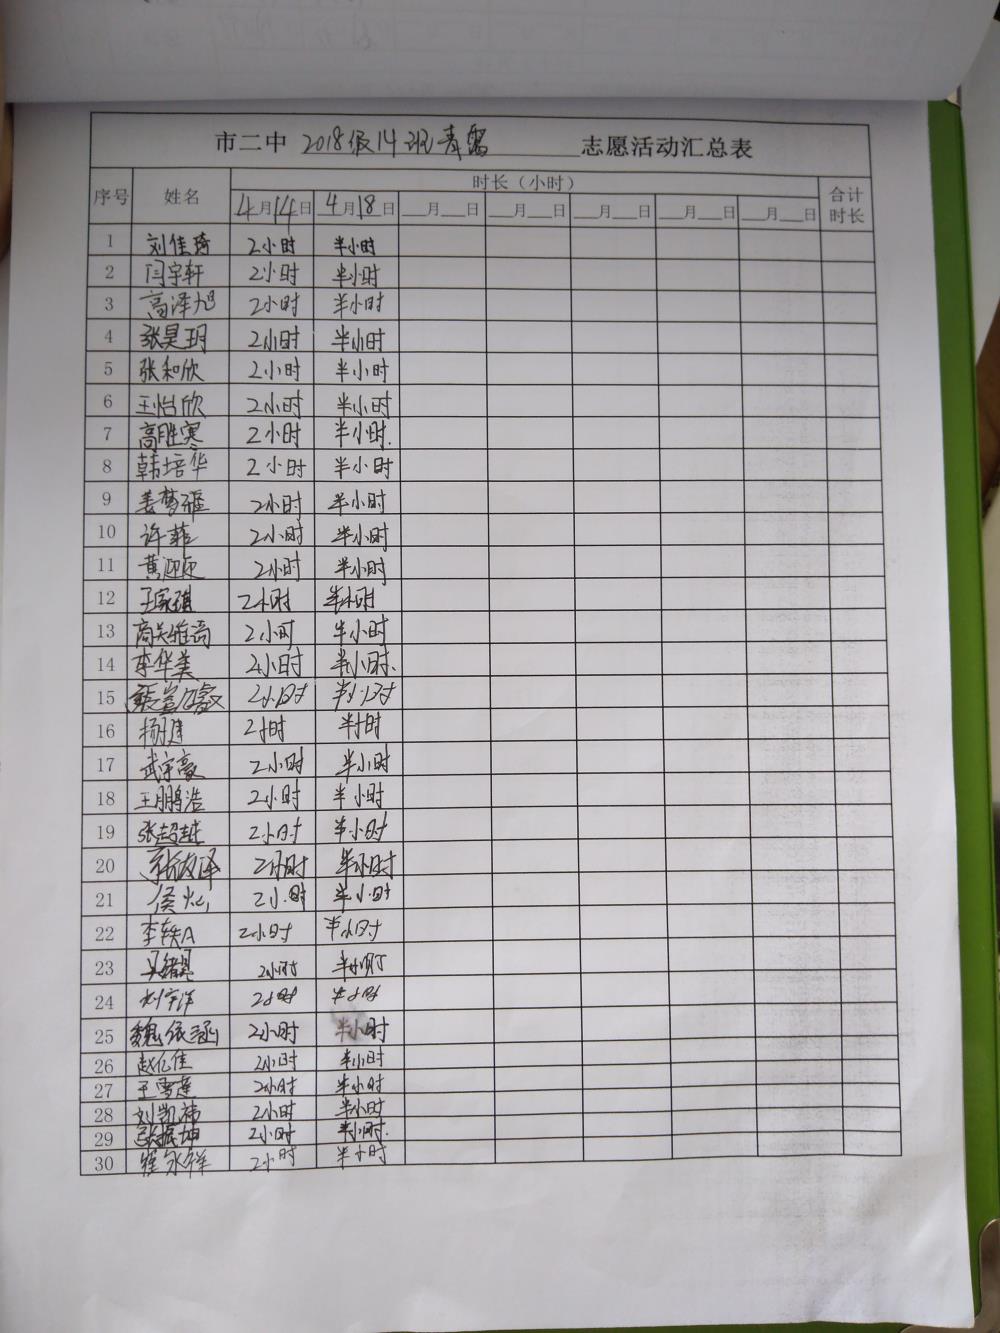 市二中 2018级14班青鸾 志愿活动汇总表
序号 姓名 时长（小时） 合计时长
4月14日 4月18日 __月__日 __月__日 __月__日 __月__日 __月__日
1 刘佳琦 2小时 半小时
2 闫宇轩 2小时 半小时
3 高泽旭 2小时 半小时
4 张昊玥 2小时 半小时
5 张和欣 2小时 半小时
6 王怡欣 2小时 半小时
7 高胜寒 2小时 半小时.
8 韩培华 2小时 半小时
9 姜梦雅 2小时 半小时
10 许菲 2小时 半小时
11 黄 2小时 半小时
12 王家琪 2小时 半小时
13 高关雅高 2小时 半小时
14 李华美 2小时 半小时.
15 2小时 半小时
16 杨建 2小时 半小时
17 武宇豪 2小时 半小时
18 王鹏浩 2小时 半小时
19 张超越 2小时 半小时
20 2小时 半小时
21 侯灿 2小时 半小时
22 李轶A 2小时 半小时
23 2小时 半小时
24 刘宇洋 2小时 半小时
25 魏依涵 2小时 半小时
26 赵亿佳 2小时 半小时
27 王雪莲 2小时 半小时
28 刘凯祎 2小时 半小时
29 张振坤 2小时 半小时.
30 崔永祥 2小时 半小时